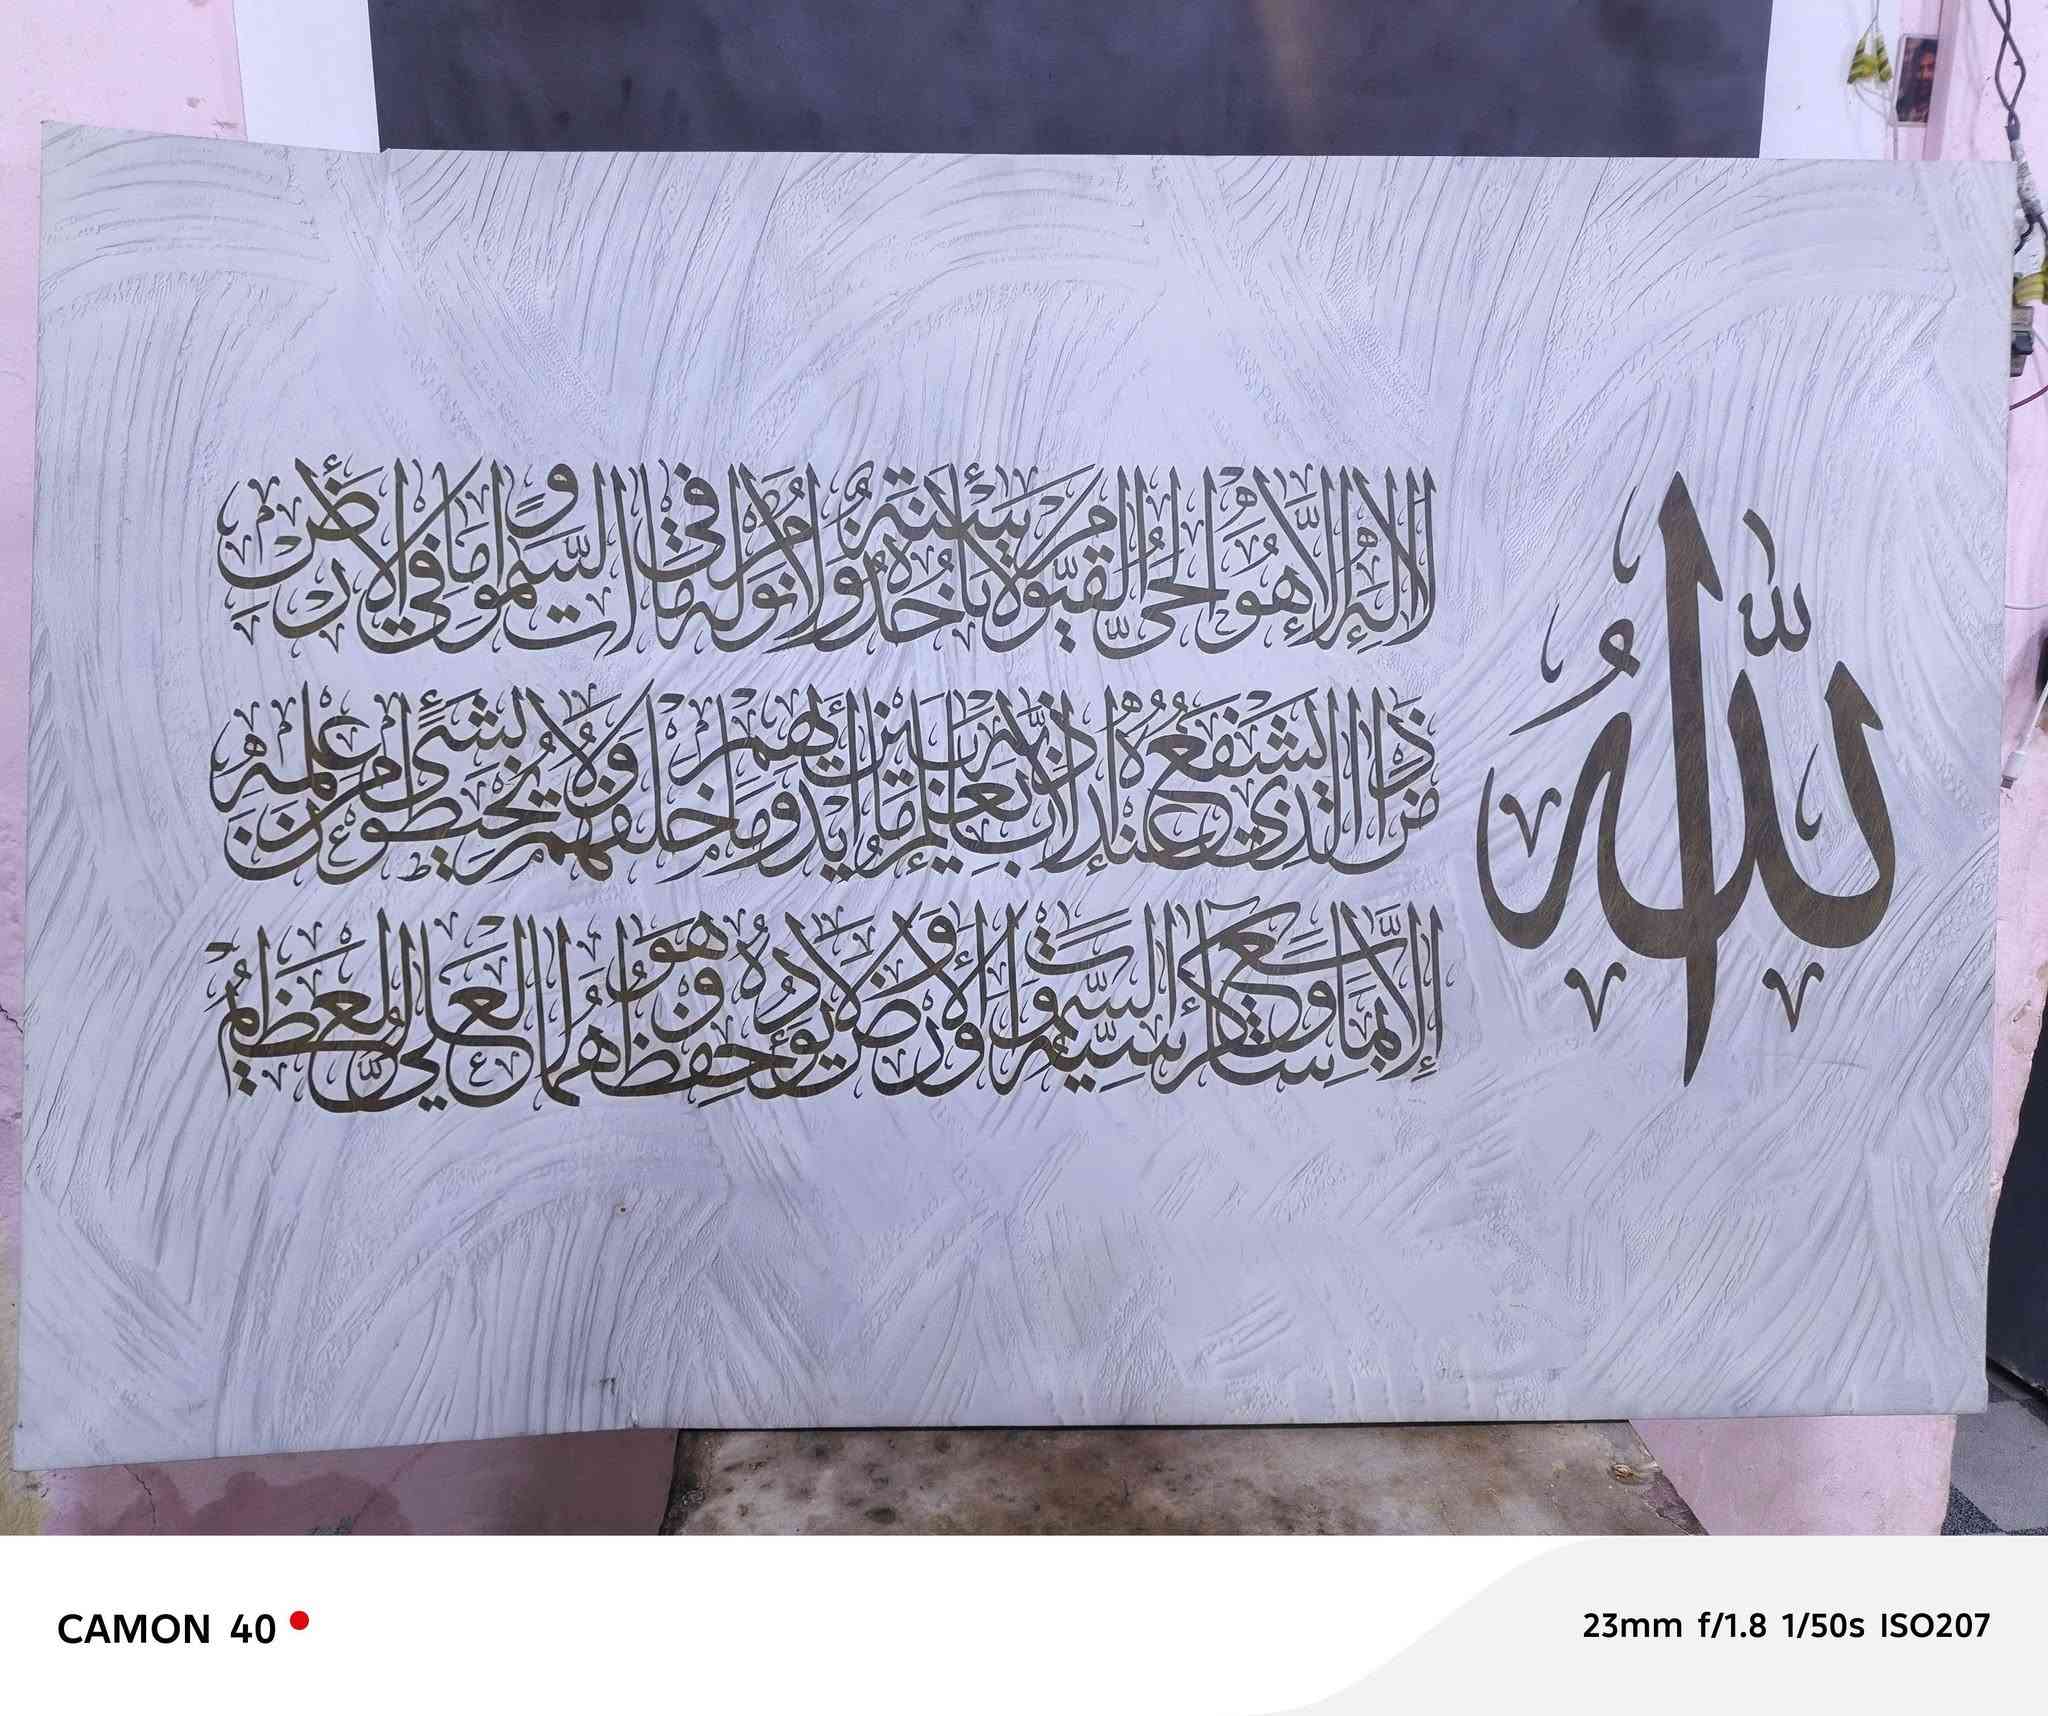 الله
لا إله إلا هو الحي القيوم لا تأخذه سنة ولا نوم له ما في السموات وما في الأرض
من ذا الذي يشفع عنده إلا بإذنه يعلم ما بين أيديهم وما خلفهم ولا يحيطون بشيء من علمه
إلا بما شاء وسع كرسيه السموات والأرض ولا يؤده حفظهما وهو العلي العظيم
CAMON 40
23mm f/1.8 1/50s ISO207